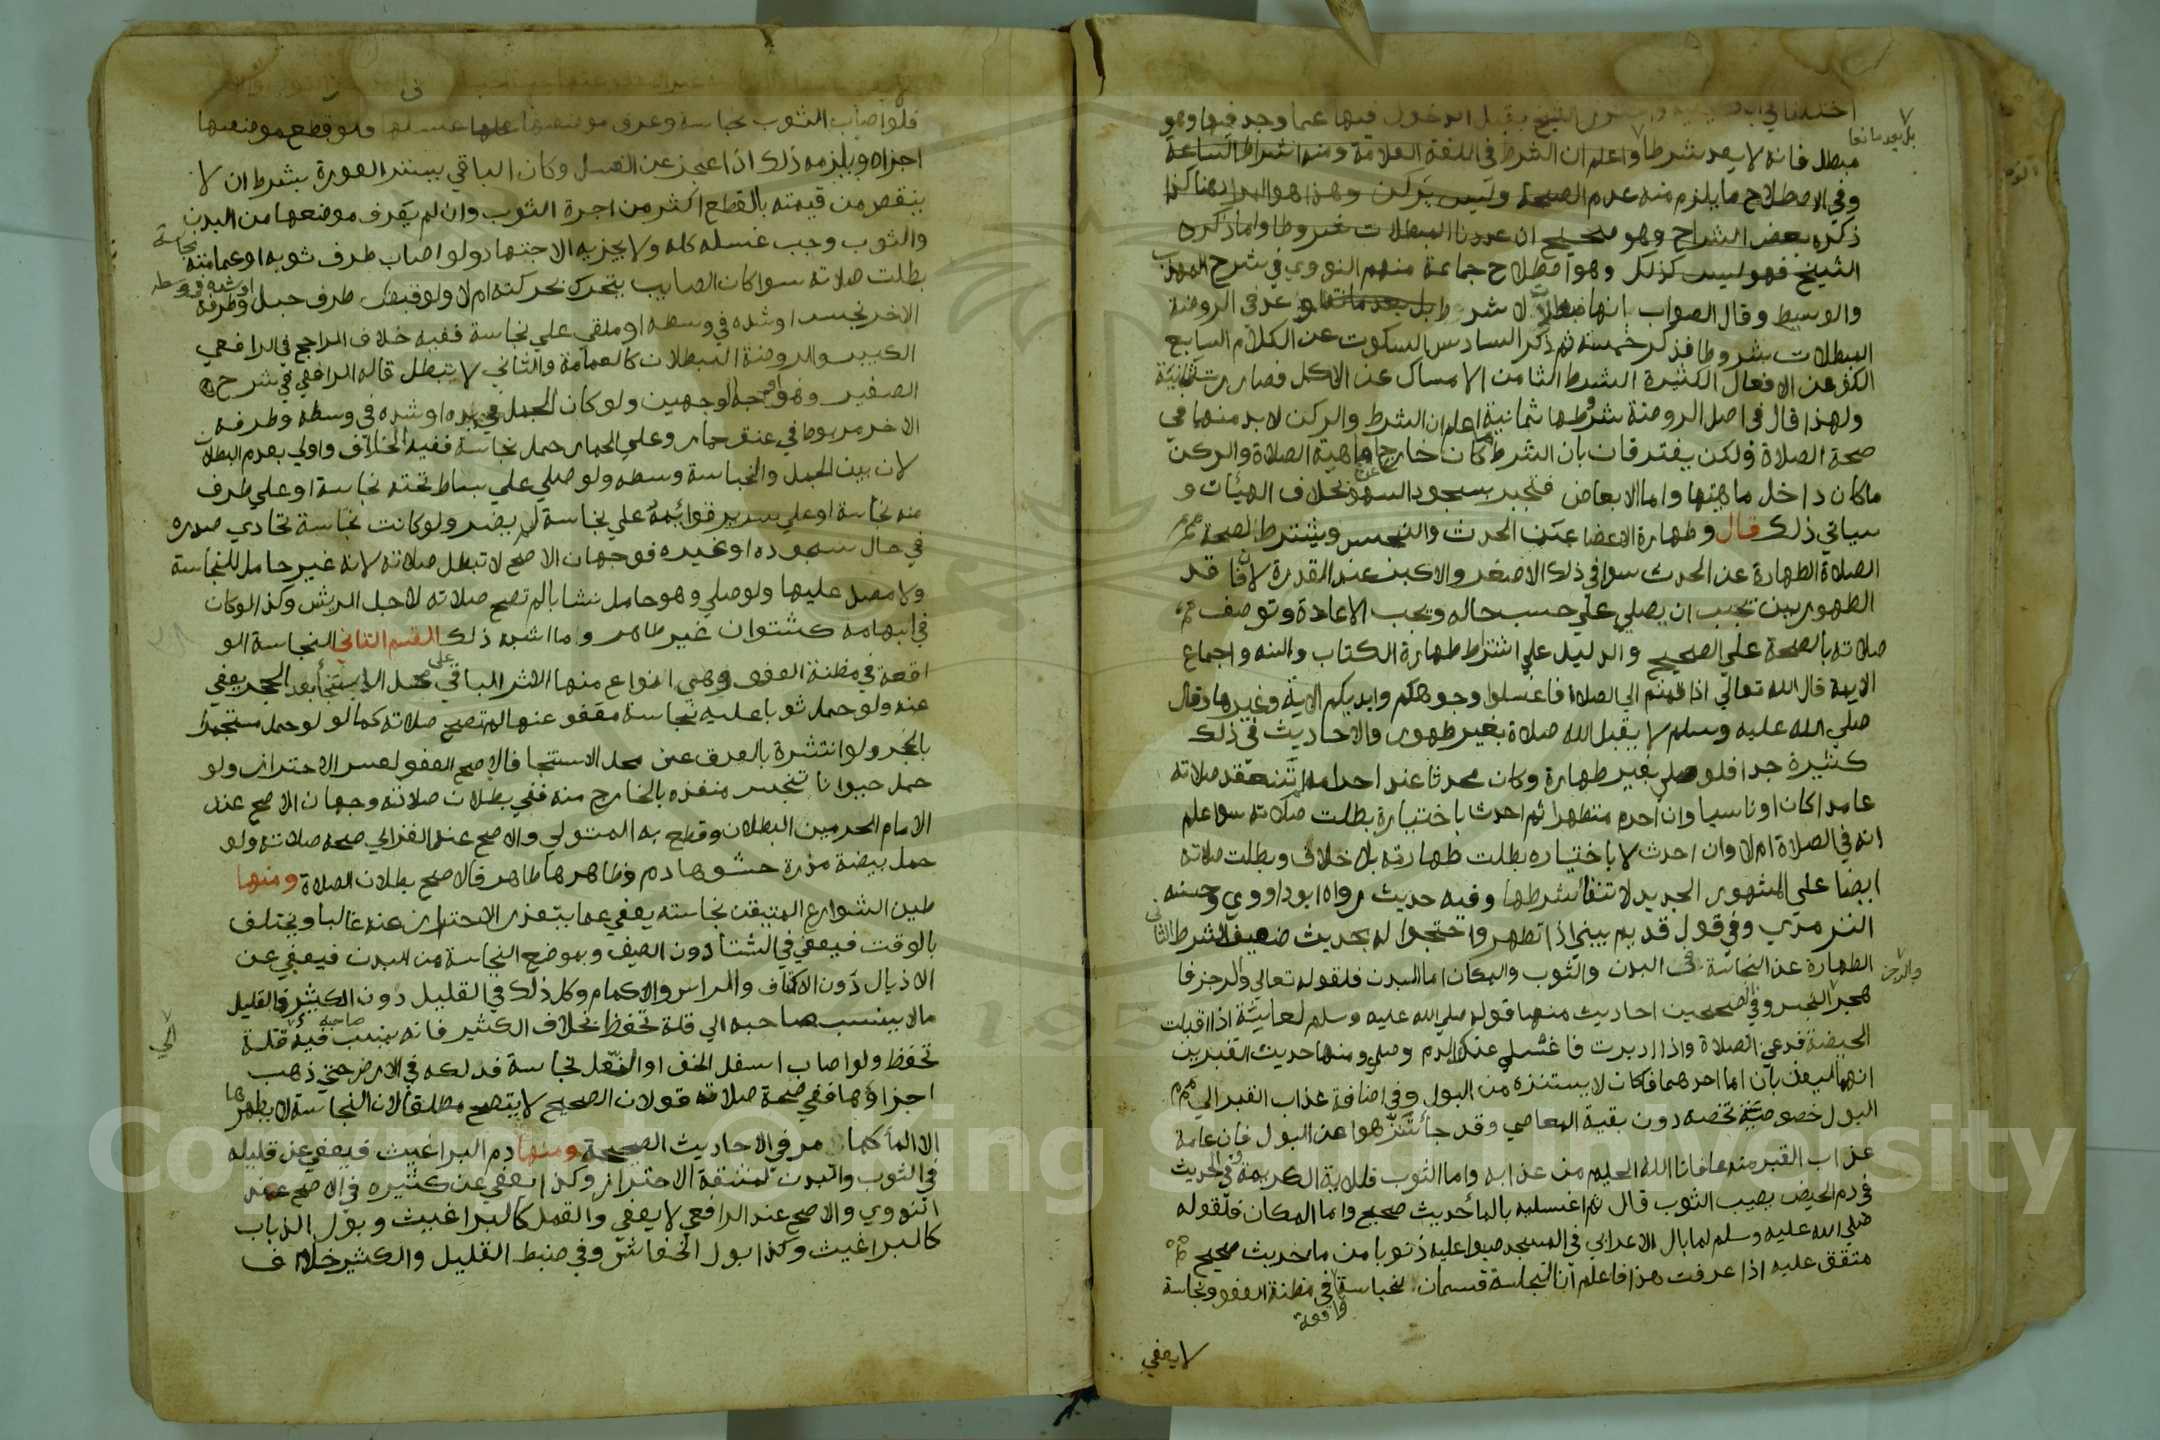 اختلفا في وا الشيخ بقبل الدخول فيها عما وجد فيها وهو
مبطل فانه لا يعد شرطا واعلم ان الشرط في اللغة العلامة ومنه اشراط الساعة
بل يعد مانعا
وفي الاصطلاح ما يلزم منه عدم الصحة وليس بركن وهذا هو المراد هنا كذا
ذكره بعض الشراح وهو صحيح ان عددنا المبطلات شروطا واما ذكره
الشيخ فهو ليس كذلك وهو اصطلاح جماعة منهم النووي في شرح المهذب
والوسيط وقال الصواب انها مبطلات لا شروط بل يعد مانعا وعد في الروضة
المبطلات شروطا فذكر خمسة ثم ذكر السادس السكوت عن الكلام السابع
الكف عن الافعال الكثيرة الشرط الثامن الامساك عن الاكل فصارت ثمانية
ولهذا قال في اصل الروضة شروطها ثمانية اعلم ان الشرط والركن لابد منهما في
صحة الصلاة ولكن يفترقان بان الشرط ما كان خارجا عن ماهية الصلاة والركن
ما كان داخل ماهيتها واما الابعاض فتجبر بسجود السهو بخلاف الهيئات و
سياتي ذلك قال وطهارة الاعضا عن الحدث والنجس ويشترط لصحة
الصلاة الطهارة عن الحدث سوا في ذلك الاصغر والاكبر عند القدرة لان فاقد
الطهورين يجب ان يصلي علي حسب حاله ويجب الاعادة وتوصف
صلاته بالصحة علي الصحيح والدليل علي اشتراط طهارة الكتاب والسنه واجماع
الايمة قال الله تعالي اذا قمتم الي الصلاة فاغسلوا وجوهكم وايديكم الاية وغيرها وقال
صلي الله عليه وسلم لا يقبل الله صلاة بغير طهور والاحاديث في ذلك
كثيرة جدا فلو صلي بغير طهارة وكان محدثا عند احرامه لم تنعقد صلاته
عامدا كان او ناسيا وان احرم متطهرا ثم احدث باختياره بطلت صلاته سوا علم
انه في الصلاة ام لا وان احدث لا باختياره بطلت طهارته بلا خلاف وبطلت صلاته
ايضا علي المشهور الجديد لانتفا شرطها وفيه حديث رواه ابو داوود وحسنه
الترمذي وفي قول قديم يبني اذا تطهر واحتجوا له بحديث ضعيف الشرط الثاني
الطهارة عن النجاسة في البدن والثوب والمكان اما البدن فلقوله تعالي والرجز فا
هجر النجس وفي الصحيحين احاديث منها قوله صلي الله عليه وسلم لعايشة اذا اقبلت
الحيضة فدعي الصلاة واذا ادبرت فاغسلي عنك الدم وصلي ومنها حديث القبرين
انهما ليعذبان اما احدهما فكان لا يستنزه من البول وفي اضافة عذاب القبر الي
البول خصوصية تخصه دون بقية المعاصي وقد جا تنزهوا عن البول فان عامة
عذاب القبر منه عافانا الله الحليم من عذابه واما الثوب فللاية الكريمة وفي الحديث
في دم الحيض يصيب الثوب قال ثم اغسليه بالما حديث صحيح واما المكان فلقوله
صلي الله عليه وسلم لما بال الاعرابي في المسجد صبوا عليه ذنوبا من ما حديث صحيح
متفق عليه اذا عرفت هذا فاعلم ان النجاسة قسمان نجاسة في مظنة العفو ونجاسة
واقعة
لا يعفي
فلو اصاب الثوب نجاسة وعرف موضعها غسلها فلو قطع موضعها
اجزاه ويلزمه ذلك اذا عجز عن الغسل وكان الباقي يستر العورة بشرط ان لا
ينقص من قيمته بالقطع اكثر من اجرة الثوب وان لم يعرف موضعها من البدن
والثوب وجب غسله كله ولا يجزيه الاجتهاد ولو اصاب طرف ثوبه او عمامته نجاسة
بطلت صلاته سوا كان الصايب يتحرك بحركته ام لا ولو قبض طرف حبل وطرفه
الاخر نجس او شده في وسطه او ملقي علي نجاسة ففيه خلاف الراجح في الرافعي
الكبير والروضة البطلان كالعمامة والثاني لا تبطل قاله الرافعي في شرح
الصغير وهو اوجه الوجهين ولو كان الحبل في يده او شده في وسطه وطرفه
الاخر مربوط في عنق حمار وعلي الحمار حمل نجاسة ففيه الخلاف واولي بعدم البطلان
لان بين الحبل والنجاسة وسطه ولو صلي علي بساط تحته نجاسة او علي طرف
منه نجاسة او علي سرير قوائمه علي نجاسة لم يضر ولو كانت نجاسة تحادي صدره
في حال سجوده او غيره فوجهان الاصح لا تبطل صلاته لانه غير حامل للنجاسة
ولا مصل عليها ولو صلي وهو حامل نشابا لم تصح صلاته لاجل الريش وكذا لو كان
في ابهامه كشتوان غير طاهر وما اشبه ذلك القسم الثاني النجاسة الو
اقعة في مظنة العفو وهي انواع منها الاثر الباقي علي محل الاستنجا بعد الحجر يعفي
عنه ولو حمل ثوبا عليه نجاسة معفو عنها لم تصح صلاته كما لو لو حمل مستجمرا
بالحجر ولو انتشرة بالعرق عن محل الاستنجا فالاصح العفو لعسر الاحتراز ولو
حمل حيوانا تنجس منفذه بالخارج منه ففي بطلان صلاته وجهان الاصح عند
الامام الحرمين البطلان وقطع به المتولي والاصح عند الغزالي صحه صلاته ولو
حمل بيضة مذرة حشوها دم وظاهرها طاهر فالاصح بطلان الصلاة ومنها
طين الشوارع المتيقن نجاسته يعفي عما يتعذر الاحتراز عنه غالبا ويختلف
بالوقت فيعفي في الشتا دون الصيف وبموضع النجاسة من البدن فيعفي عن
الاذيال دون الاكتاف والراس والاكمام وكل ذلك في القليل دون الكثير والقليل
ما لا ينسب صاحبه الي قلة تحفظ بخلاف الكثير فانه ينسب صاحبه فيه الي قلة
تحفظ ولو اصاب اسفل الخف او النعل نجاسة فدلكه في الارض حتي ذهب
اجزاؤها ففي صحة صلاته قولان الصحيح لا تصح مطلقا لان النجاسة لا يطهرها
الا الما كما مر في الاحاديث الصحيحة ومنها دم البراغيث فيعفي عن قليله
في الثوب والبدن لمشقة الاحتراز وكذا يعفي عن كثيره في الاصح عند
النووي والاصح عند الرافعي لا يعفي والقمل كالبراغيث وبول الذباب
كالبراغيث وكذا بول الخفاش وفي ضبط القليل والكثير خلاف
Copyright © King Saud University